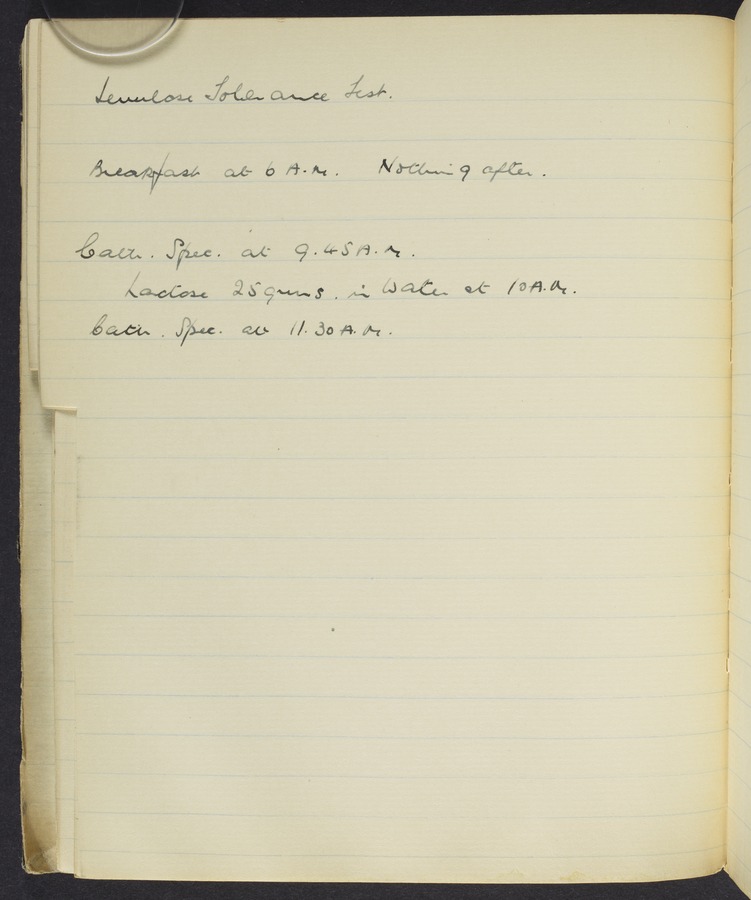 Levulose Tolerance Test.
Breakfast at 6 A.M. Nothing after.
Cath. Spec. at 9.45 A.M.
Lactose 25 grms. in Water at 10 A.M.
Cath. Spec. at 11.30 A.M.